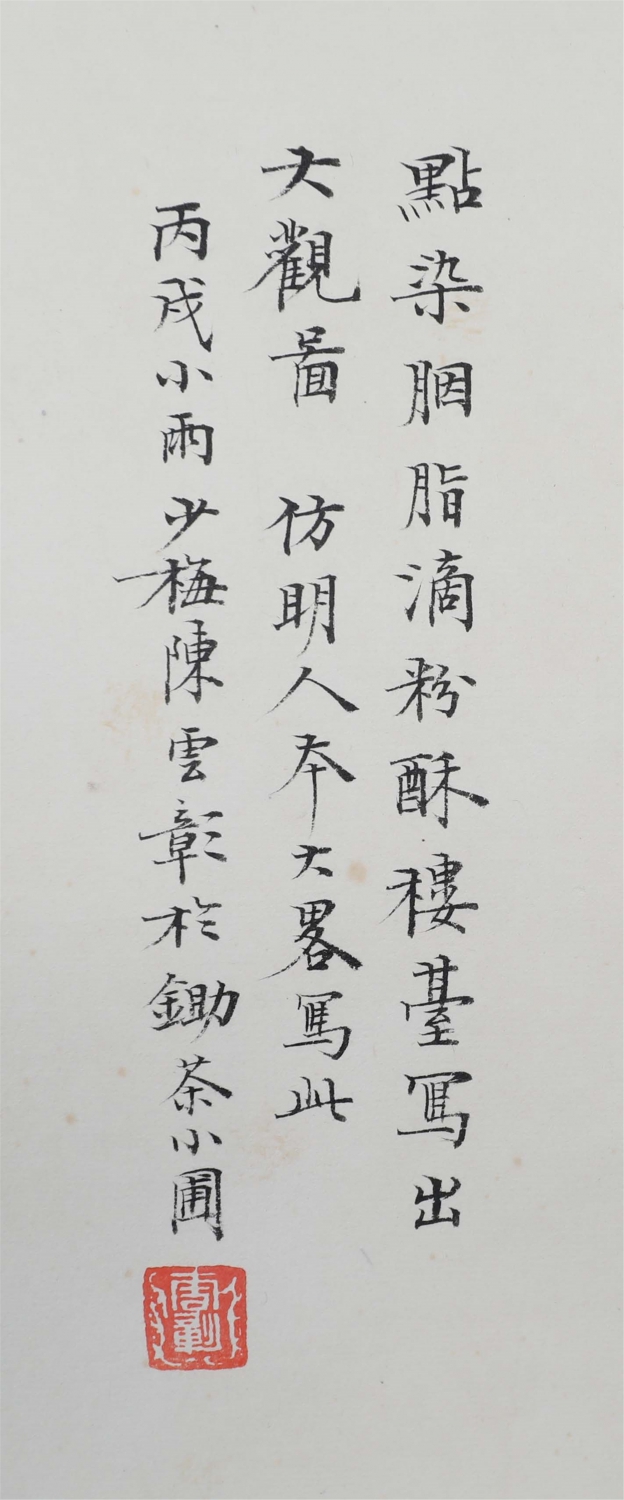 點染胭脂滴粉酥樓臺寫出
大觀啚　仿明人本大畧寫此
丙戌小雨少梅陳雲彰於鋤茶小圃